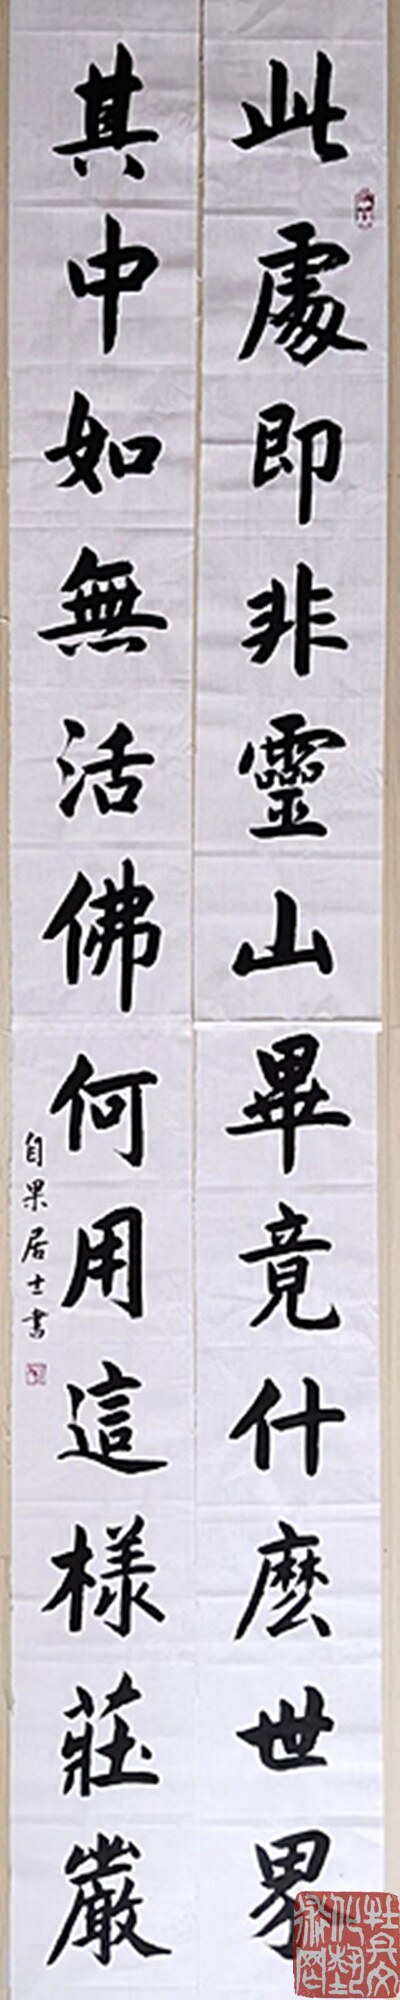 此處即非靈山畢竟什麽世界
其中如無活佛何用這樣莊嚴
自果居士書